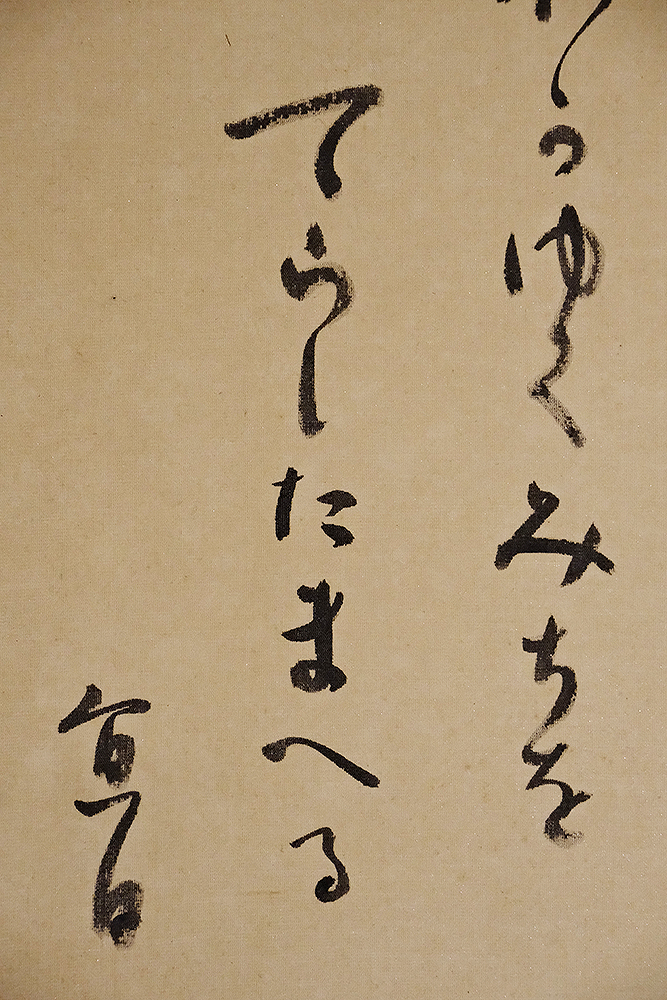 かゆくみちを
てらしたまへる